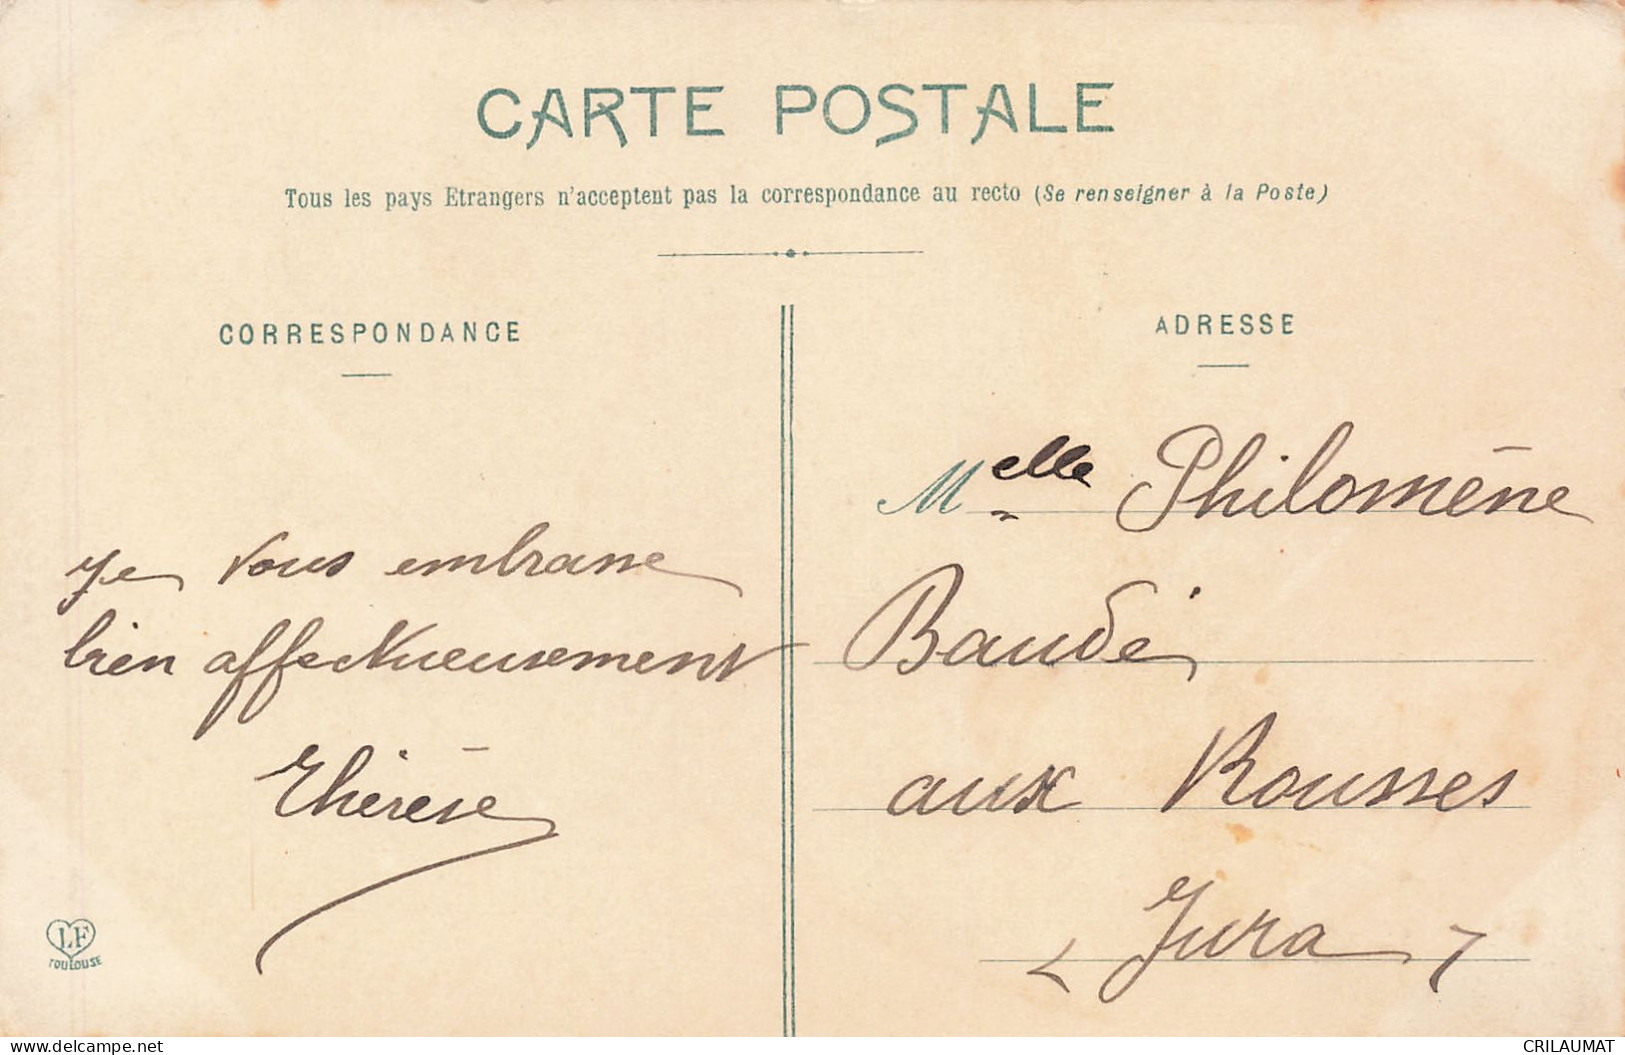 CARTE POSTALE
Tous les pays Etrangers n'acceptent pas la correspondance au recto (Se renseigner à la Poste)
CORRESPONDANCE
ADRESSE
Je vous embrasse
bien affectueusement
Thérèse
Melle Philomène
Baudé
aux Rousses
Jura
LF
TOULOUSE
www.delcampe.net
CRILAUMAT